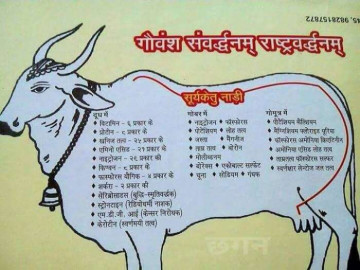 45. 9828157872
गौवंश संवर्द्धनम् राष्ट्रवर्द्धनम्
सूर्यकेतु नाड़ी
दूध में
• विटामिन - ६ प्रकार के
• प्रोटीन - ८ प्रकार के
• खनिज तत्व - २५ प्रकार के
• एमिनो एसिड - २१ प्रकार के
• नाइट्रोजन - २१ प्रकार की
• किण्वन - ८ प्रकार के
• फास्फोरस यौगिक - ४ प्रकार के
• शर्करा - २ प्रकार की
• सेरिब्रोसाडस (बुद्धि-स्मृतिवर्द्धक)
• स्ट्रोनटाइन (रेडियोधर्मी नाशक)
• एम.डी.जी.आई (कैंसर निरोधक)
• केरोटीन (स्वर्णमयी तत्व)
गोबर में
• नाइट्रोजन • फॉस्फोरस
• पोटेशियम • लोह तत्व
• जस्ता • मैंगनीज
• ताम्र तत्व • बोरोन
• मोलीब्धानम
• बोरेक्स • एकोबाल्ट सल्फेट
• चूना • सोडियम • गंधक
गोमूत्र में
• पोटेशियम कैल्शियम
• मैग्नेशियम क्लोराइड यूरिया
• फॉस्फोरस अमोनिया क्रिएटिनीन
• अमोनिया एसिड लोह तत्व
• ताम्रतत्व फॉस्फोरस सल्फर
• स्वर्णक्षार सेन्द्रीय जल तत्व
छगन